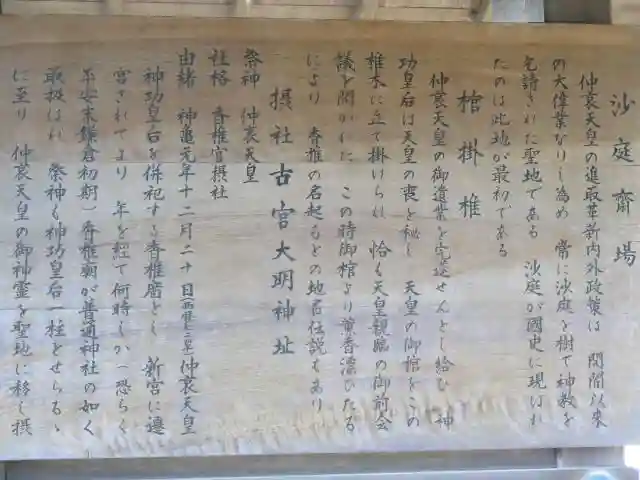 沙庭斎場
仲哀天皇の進取革新内外政策は 開闢以来
の大偉業なりし為め 常に沙庭を樹て神教を
乞請された聖地である 沙庭が國史に現はれ
たのは此地が最初である
棺掛椎
仲哀天皇の御遺業を完遂せんとし給ひ 神
功皇后は天皇の喪を秘し 天皇の御棺をこの
椎木に立て掛けられ 恰も天皇親臨の御前会
議を開かれた この時御棺より薫香漂ひたる
により 香椎の名起るとの地名伝説もあり
摂社古宮大明神址
祭神 仲哀天皇
社格 香椎宮摂社
由緒 神亀元年十二月二十日(西暦七二四)仲哀天皇
神功皇后を併祀する香椎廟として 新宮に遷
宮されてより 年を経て何時しか(恐らく
平安末鎌倉初期)香椎廟が普通神社の如く
取扱はれ 祭神も神功皇后一柱とせらるゝ
に至り 仲哀天皇の御神霊を聖地に移し摂